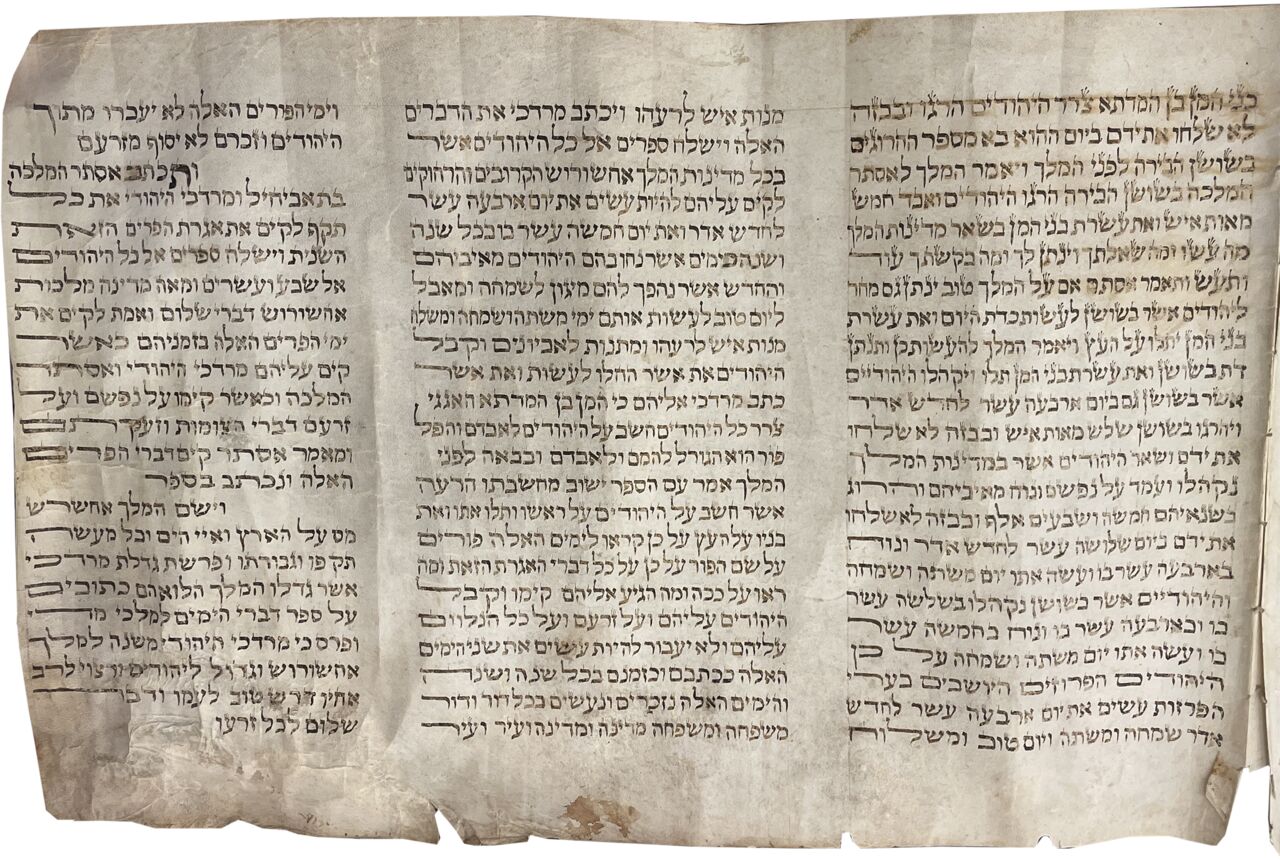 בני המן בן המדתא צרר היהודים הרגו ובבזה
לא שלחו את ידם ביום ההוא בא מספר ההרוגים
בשושן הבירה לפני המלך ויאמר המלך לאסתר
המלכה בשושן הבירה הרגו היהודים ואבד חמש
מאות איש ואת עשרת בני המן בשאר מדינות המלך
מה עשו ומה שאלתך וינתן לך ומה בקשתך עוד
ותעש ותאמר אסתר אם על המלך טוב ינתן גם מחר
ליהודים אשר בשושן לעשות כדת היום ואת עשרת
בני המן יתלו על העץ ויאמר המלך להעשות כן ותנתן
דת בשושן ואת עשרת בני המן תלו ויקהלו היהודיים
אשר בשושן גם ביום ארבעה עשר לחדש אדר
ויהרגו בשושן שלש מאות איש ובבזה לא שלחו
את ידם ושאר היהודים אשר במדינות המלך
נקהלו ועמד על נפשם ונוח מאיביהם והרוג
בשנאיהם חמשה ושבעים אלף ובבזה לא שלחו
את ידם ביום שלושה עשר לחדש אדר ונוח
בארבעה עשר בו ועשה אתו יום משתה ושמחה
והיהודיים אשר בשושן נקהלו בשלשה עשר
בו ובארבעה עשר בו ונוח בחמשה עשר
בו ועשה אתו יום משתה ושמחה על כן
היהודים הפרוזים הישבים בערי
הפרזות עשים את יום ארבעה עשר לחדש
אדר שמחה ומשתה ויום טוב ומשלוח
מנות איש לרעהו ויכתב מרדכי את הדברים
האלה וישלח ספרים אל כל היהודים אשר
בכל מדינות המלך אחשורוש הקרובים והרחוקים
לקים עליהם להיות עשים את יום ארבעה עשר
לחדש אדר ואת יום חמשה עשר בו בכל שנה
ושנה כימים אשר נחו בהם היהודים מאיביהם
והחדש אשר נהפך להם מיגון לשמחה ומאבל
ליום טוב לעשות אותם ימי משתה ושמחה ומשלח
מנות איש לרעהו ומתנות לאביונים וקבל
היהודים את אשר החלו לעשות ואת אשר
כתב מרדכי אליהם כי המן בן המדתא האגגי
צרר כל היהודים חשב על היהודים לאבדם והפל
פור הוא הגורל להמם ולאבדם ובבאה לפני
המלך אמר עם הספר ישוב מחשבתו הרעה
אשר חשב על היהודים על ראשו ותלו אתו ואת
בניו על העץ על כן קראו לימים האלה פורים
על שם הפור על כן על כל דברי האגרת הזאת ומה
ראו על ככה ומה הגיע אליהם קימו וקבל
היהודים עליהם ועל זרעם ועל כל הנלוים
עליהם ולא יעבור להיות עשים את שני הימים
האלה ככתבם וכזמנם בכל שנה ושנה
והימים האלה נזכרים ונעשים בכל דור ודור
משפחה ומשפחה מדינה ומדינה ועיר ועיר
וימי הפורים האלה לא יעברו מתוך
היהודים וזכרם לא יסוף מזרעם
ותכתב אסתר המלכה
בת אביחיל ומרדכי היהודי את כל
תקף לקים את אגרת הפרים הזאת
השנית וישלח ספרים אל כל היהודים
אל שבע ועשרים ומאה מדינה מלכות
אחשורוש דברי שלום ואמת לקים את
ימי הפרים האלה בזמניהם כאשר
קים עליהם מרדכי היהודי ואסתר
המלכה וכאשר קימו על נפשם ועל
זרעם דברי הצומות וזעקתם
ומאמר אסתר קים דברי הפרים
האלה ונכתב בספר
וישם המלך אחשרש
מס על הארץ ואיי הים וכל מעשה
תקפו וגבורתו ופרשת גדלת מרדכי
אשר גדלו המלך הלוא הם כתובים
על ספר דברי הימים למלכי מדי
ופרס כי מרדכי היהודי משנה למלך
אחשורוש וגדול ליהודים ורצוי לרב
אחיו דרש טוב לעמו ודבר
שלום לכל זרעו